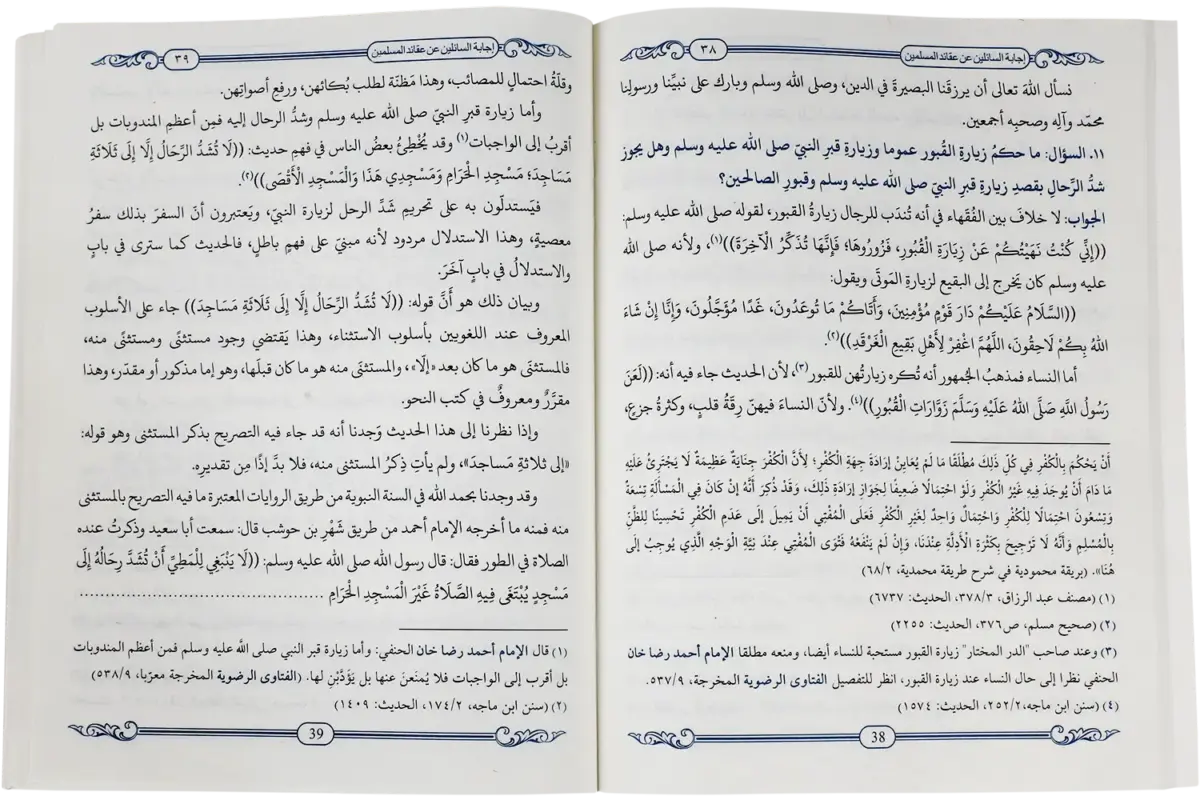 إجابة السائلين عن عقائد المسلمين
٣٨
نسأل اللهَ تعالى أن يرزقَنا البصيرةَ في الدين، وصلى الله وسلم وبارك على نبيِّنا ورسولِنا
محمّد وآلِه وصحبِه أجمعين.
١١. السؤال: ما حكمُ زيارةِ القُبور عموما وزيارةِ قبرِ النبيّ صلى الله عليه وسلم وهل يجوز
شدُّ الرِّحالِ بقصدِ زيارةِ قبرِ النبيّ صلى الله عليه وسلم وقبورِ الصالحين؟
الجواب: لا خلافَ بين الفُقَهاء في أنه تُندَب للرجال زيارةُ القبور، لقوله صلى الله عليه وسلم:
((إِنِّي كُنْتُ نَهَيْتُكُمْ عَنْ زِيَارَةِ الْقُبُورِ، فَزُورُوهَا؛ فَإِنَّهَا تُذَكِّرُ الْآخِرَةَ))(١)، ولأنه صلى الله
عليه وسلم كان يَخرج إلى البقيع لزيارةِ المَوتَى ويقول:
((السَّلَامُ عَلَيْكُمْ دَارَ قَوْمٍ مُؤْمِنِينَ، وَأَتَاكُمْ مَا تُوعَدُونَ، غَدًا مُؤَجَّلُونَ، وَإِنَّا إِنْ شَاءَ
اللهُ بِكُمْ لَاحِقُونَ، اللَّهُمَّ اغْفِرْ لِأَهْلِ بَقِيعِ الْغَرْقَدِ))(٢).
أما النساء فمذهبُ الجُمهور أنه تُكره زيارتُهن للقبور(٣)، لأن الحديث جاء فيه أنه: ((لَعَنَ
رَسُولُ اللَّهِ صَلَّى اللَّهُ عَلَيْهِ وَسَلَّمَ زَوَّارَاتِ الْقُبُورِ))(٤). ولأنّ النساءَ فيهنّ رِقّةُ قلبٍ، وكثرةُ جزعٍ،
أَنْ يَحْكُمَ بِالْكُفْرِ فِي كُلِّ ذَلِكَ مُطْلَقًا مَا لَمْ يُعَايِنْ إِرَادَةَ جِهَةِ الْكُفْرِ؛ لِأَنَّ الْكُفْرَ جِنَايَةٌ عَظِيمَةٌ لَا يَجْتَرِئُ عَلَيْهِ
مَا دَامَ أَنْ يُوجَدَ فِيهِ غَيْرُ الْكُفْرِ وَلَوْ احْتِمَالًا ضَعِيفًا لِجَوَازِ إِرَادَةِ ذَلِكَ، وَقَدْ ذُكِرَ أَنَّهُ إِنْ كَانَ فِي الْمَسْأَلَةِ تِسْعَةٌ
وَتِسْعُونَ احْتِمَالًا لِلْكُفْرِ وَاحْتِمَالٌ وَاحِدٌ لِغَيْرِ الْكُفْرِ فَعَلَى الْمُفْتِي أَنْ يَمِيلَ إِلَى عَدَمِ الْكُفْرِ تَحْسِينًا لِلظَّنِّ
بِالْمُسْلِمِ وَأَنَّهُ لَا تَرْجِيحَ بِكَثْرَةِ الْأَدِلَّةِ عِنْدَنَا، وَإِنْ لَمْ يَنْفَعْهُ فَتْوَى الْمُفْتِي عِنْدَ نِيَّةِ الْوَجْهِ الَّذِي يُوجِبُ إِلَى
هُنَا». (بريقة محمودية في شرح طريقة محمدية، ٦٨/٢)
(١) (مصنف عبد الرزاق، ٣٧٨/٣، الحديث: ٦٧٣٧)
(٢) (صحيح مسلم، ص٣٧٦، الحديث: ٢٢٥٥)
(٣) وعند صاحب "الدر المختار" زيارة القبور مستحبة للنساء أيضا، ومنعه مطلقا الإمام أحمد رضا خان
الحنفي نظرا إلى حال النساء عند زيارة القبور، انظر للتفصيل الفتاوى الرضوية المخرجة، ٥٣٧/٩.
(٤) (سنن ابن ماجه،٢٥٢/٢، الحديث: ١٥٧٤)
38
إجابة السائلين عن عقائد المسلمين
٣٩
وقلّةُ احتمالٍ للمصائب، وهذا مَظنّة لطلب بُكائهن، ورفعِ أصواتِهن.
وأما زيارة قبرِ النبيّ صلى الله عليه وسلم وشدُّ الرحال إليه فمِن أعظمِ المندوبات بل
أقربُ إلى الواجبات(١) وقد يُخْطِئُ بعضُ الناس في فهمِ حديث: ((لَا تُشَدُّ الرِّحَالُ إِلَّا إِلَى ثَلَاثَةِ
مَسَاجِدَ؛ مَسْجِدِ الْحَرَامِ وَمَسْجِدِي هَذَا وَالْمَسْجِدِ الْأَقْصَى))(٢).
فيَستدلّون به على تحريمِ شَدِّ الرحل لزيارة النبيّ، ويَعتبرون أنّ السفرَ بذلك سفرُ
معصيةٍ، وهذا الاستدلال مردود لأنه مبنيّ على فهمٍ باطلٍ، فالحديث كما سترى في بابٍ
والاستدلالُ في بابٍ آخَرَ.
وبيان ذلك هو أَنَّ قوله: ((لَا تُشَدُّ الرِّحَالُ إِلَّا إِلَى ثَلَاثَةِ مَسَاجِدَ)) جاء على الأسلوب
المعروف عند اللغويين بأسلوب الاستثناء، وهذا يَقتضي وجود مستثنًى ومستثنًى منه،
فالمستثنى هو ما كان بعد «إلّا»، والمستثنى منه هو ما كان قبلَها، وهو إما مذكور أو مقدّر، وهذا
مقرَّرٌ ومعروفٌ في كتب النحو.
وإذا نظرنا إلى هذا الحديث وَجدنا أنه قد جاء فيه التصريح بذكر المستثنى وهو قوله:
«إلى ثلاثةِ مَساجدَ»، ولم يأتِ ذِكرُ المستثنى منه، فلا بدَّ إذًا مِن تقديرِه.
وقد وجدنا بحمد الله في السنة النبوية من طريق الروايات المعتبرة ما فيه التصريح بالمستثنى
منه فمنه ما أخرجه الإمام أحمد من طريق شَهْرِ بن حوشب قال: سمعت أبا سعيد وذَكرتُ عنده
الصلاة في الطور فقال: قال رسول الله صلى الله عليه وسلم: ((لَا يَنْبَغِي لِلْمَطِيِّ أَنْ تُشَدَّ رِحَالُهُ إِلَى
مَسْجِدٍ يُبْتَغَى فِيهِ الصَّلَاةُ غَيْرَ الْمَسْجِدِ الْحَرَامِ ........................................
(١) قال الإمام أحمد رضا خان الحنفي: وأما زيارة قبر النبي صلى الله عليه وسلم فمن أعظم المندوبات
بل أقرب إلى الواجبات فلا يُمنَعنَ عنها بل يُؤَدَّبْنَ لها. (الفتاوى الرضوية المخرجة معربا، ٥٣٨/٩)
(٢) (سنن ابن ماجه، ١٧٤/٢، الحديث: ١٤٠٩)
39